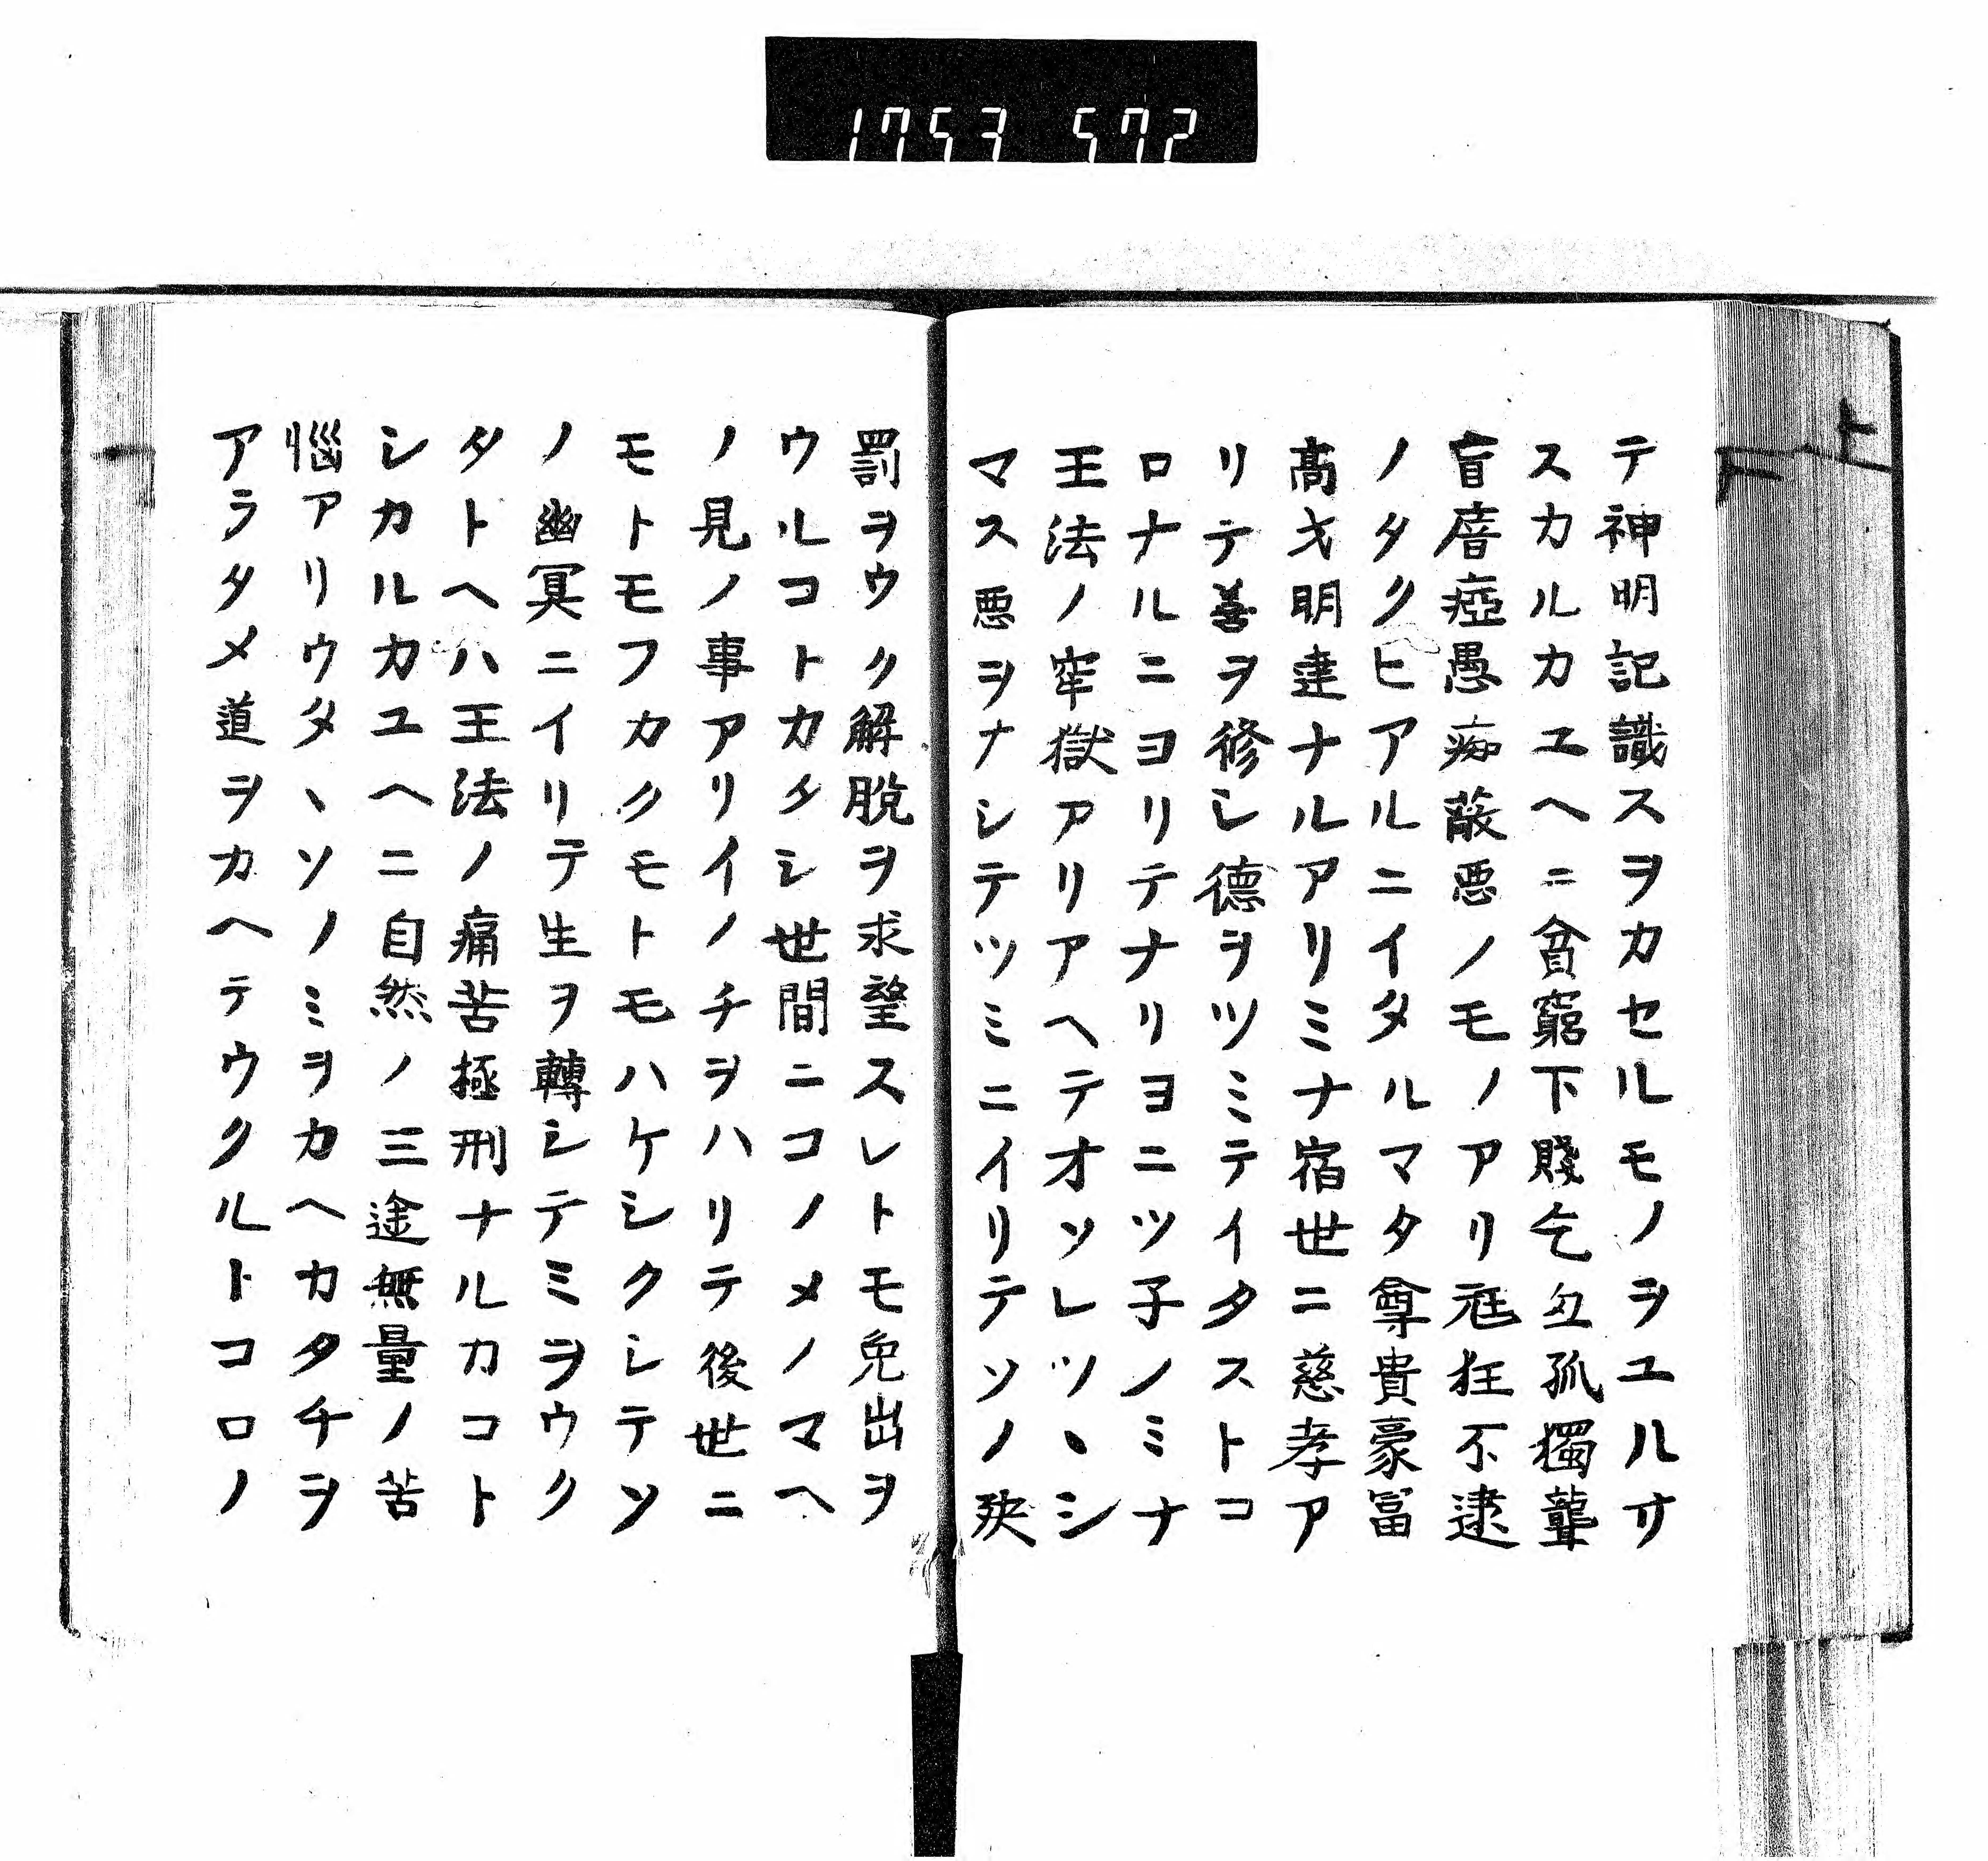 1753 572
上
テ神明記識スヲカセルモノヲユルサ
スカルカユヘニ貧窮下賤乞匃孤獨聾
盲瘖瘂愚痴蔽悪ノモノアリ尫狂不逮
ノタクヒアルニイタルマタ尊貴豪冨
髙才明達ナルアリミナ宿世ニ慈孝ア
リテ善ヲ修シ德ヲツミテイタストコ
ロナルニヨリテナリヨニツ子ノミナ
王法ノ牢獄アリアヘテオソレツヽシ
マス悪ヲナシテツミニイリテソノ殃
罰ヲウク解脱ヲ求望スレトモ免出ヲ
ウルコトカタシ世間ニコノメノマヘ
ノ見ノ事アリイノチヲハリテ後世ニ
モトモフカクモトモハケシクシテソ
ノ幽冥ニイリテ生ヲ轉シテミヲウク
タトヘハ王法ノ痛苦極刑ナルカコト
シカルカユヘニ自然ノ三途無量ノ苦
惱アリウタヽソノミヲカヘカタチヲ
アラタメ道ヲカヘテウクルトコロノ